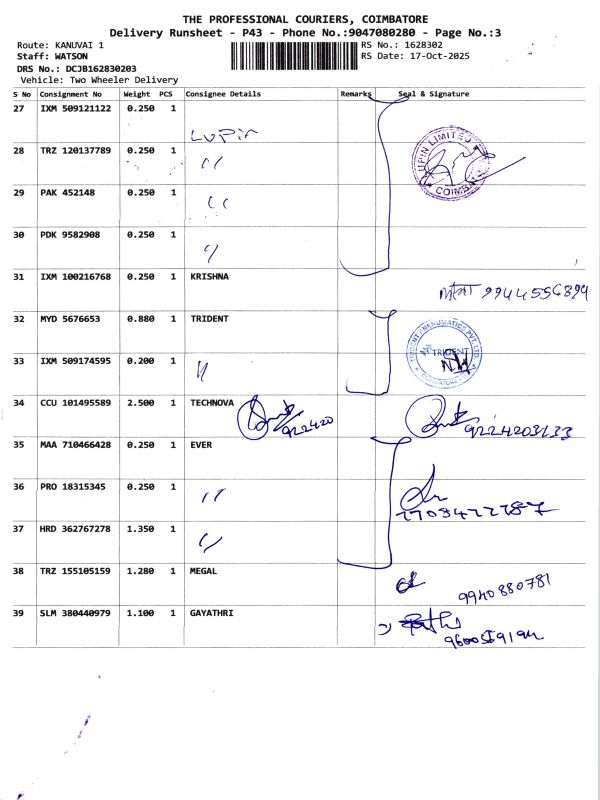 THE PROFESSIONAL COURIERS, COIMBATORE
Delivery Runsheet - P43 - Phone No.:9047080280 - Page No.:3
Route: KANUVAI 1
Staff: WATSON
DRS No.: DCJB162830203
Vehicle: Two Wheeler Delivery
RS No.: 1628302
RS Date: 17-Oct-2025
S No Consignment No Weight PCS Consignee Details Remarks Seal & Signature
27 IXM 509121122 0.250 1 Lupin
LUPIN LIMITED
COIMBATORE
28 TRZ 120137789 0.250 1 〃
29 PAK 452148 0.250 1 〃
30 PDK 9582908 0.250 1 〃
31 IXM 100216768 0.250 1 KRISHNA 9944556894
32 MYD 5676653 0.880 1 TRIDENT
TRIDENT PNEUMATICS PVT LTD
TRIDENT
COIMBATORE
33 IXM 509174595 0.200 1 〃
34 CCU 101495589 2.500 1 TECHNOVA 922420 9224203133
35 MAA 710466428 0.250 1 EVER
36 PRO 18315345 0.250 1 〃 7708477787
37 HRD 362767278 1.350 1 〃
38 TRZ 155105159 1.280 1 MEGAL 9940880781
39 SLM 380440979 1.100 1 GAYATHRI